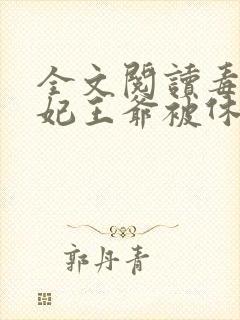 全文閱讀毒
妃王爺被休
郭丹青